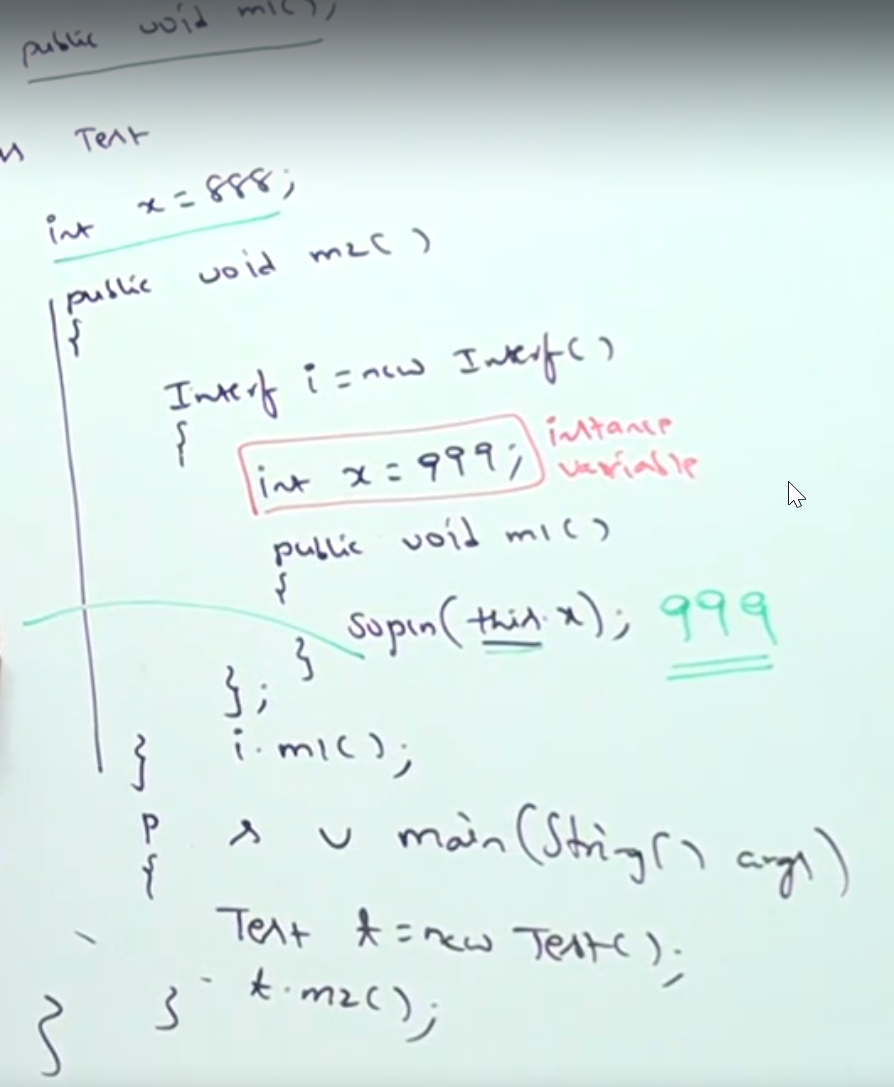 public void m1();
Test
int x = 888;
public void m2()
{
Interf i = new Interf()
{
int x = 999; instance variable
public void m1()
{
sopln(this.x); 999
}
};
i.m1();
}
p s v main(String[] args)
{
Test t = new Test();
t.m2();
}
}